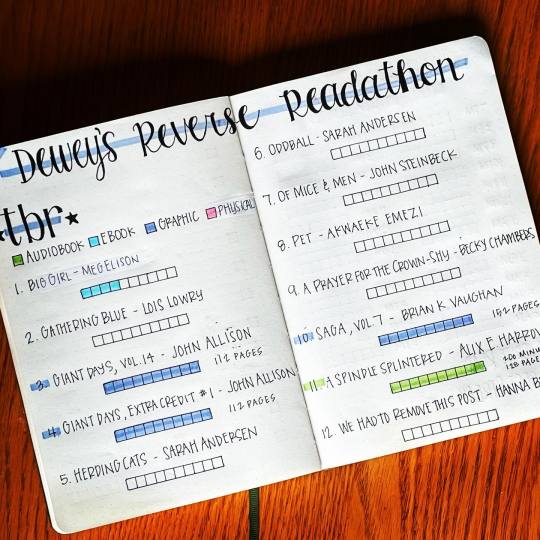 Dewey's Reverse Readathon
*tbr*
AUDIOBOOK EBOOK GRAPHIC PHYSICAL
1. BIG GIRL - MEG ELISON
2. GATHERING BLUE - LOIS LOWRY
3. GIANT DAYS, VOL. 14 - JOHN ALLISON
112 PAGES
4. GIANT DAYS, EXTRA CREDIT #1 - JOHN ALLISON
112 PAGES
5. HERDING CATS - SARAH ANDERSEN
6. ODDBALL - SARAH ANDERSEN
7. OF MICE & MEN - JOHN STEINBECK
8. PET - AKWAEKE EMEZI
9. A PRAYER FOR THE CROWN-SHY - BECKY CHAMBERS
10. SAGA, VOL. 7 - BRIAN K. VAUGHAN
152 PAGES
11. A SPINDLE SPLINTERED - ALIX E. HARROW
128 PAGES
12. WE HAD TO REMOVE THIS POST - HANNA